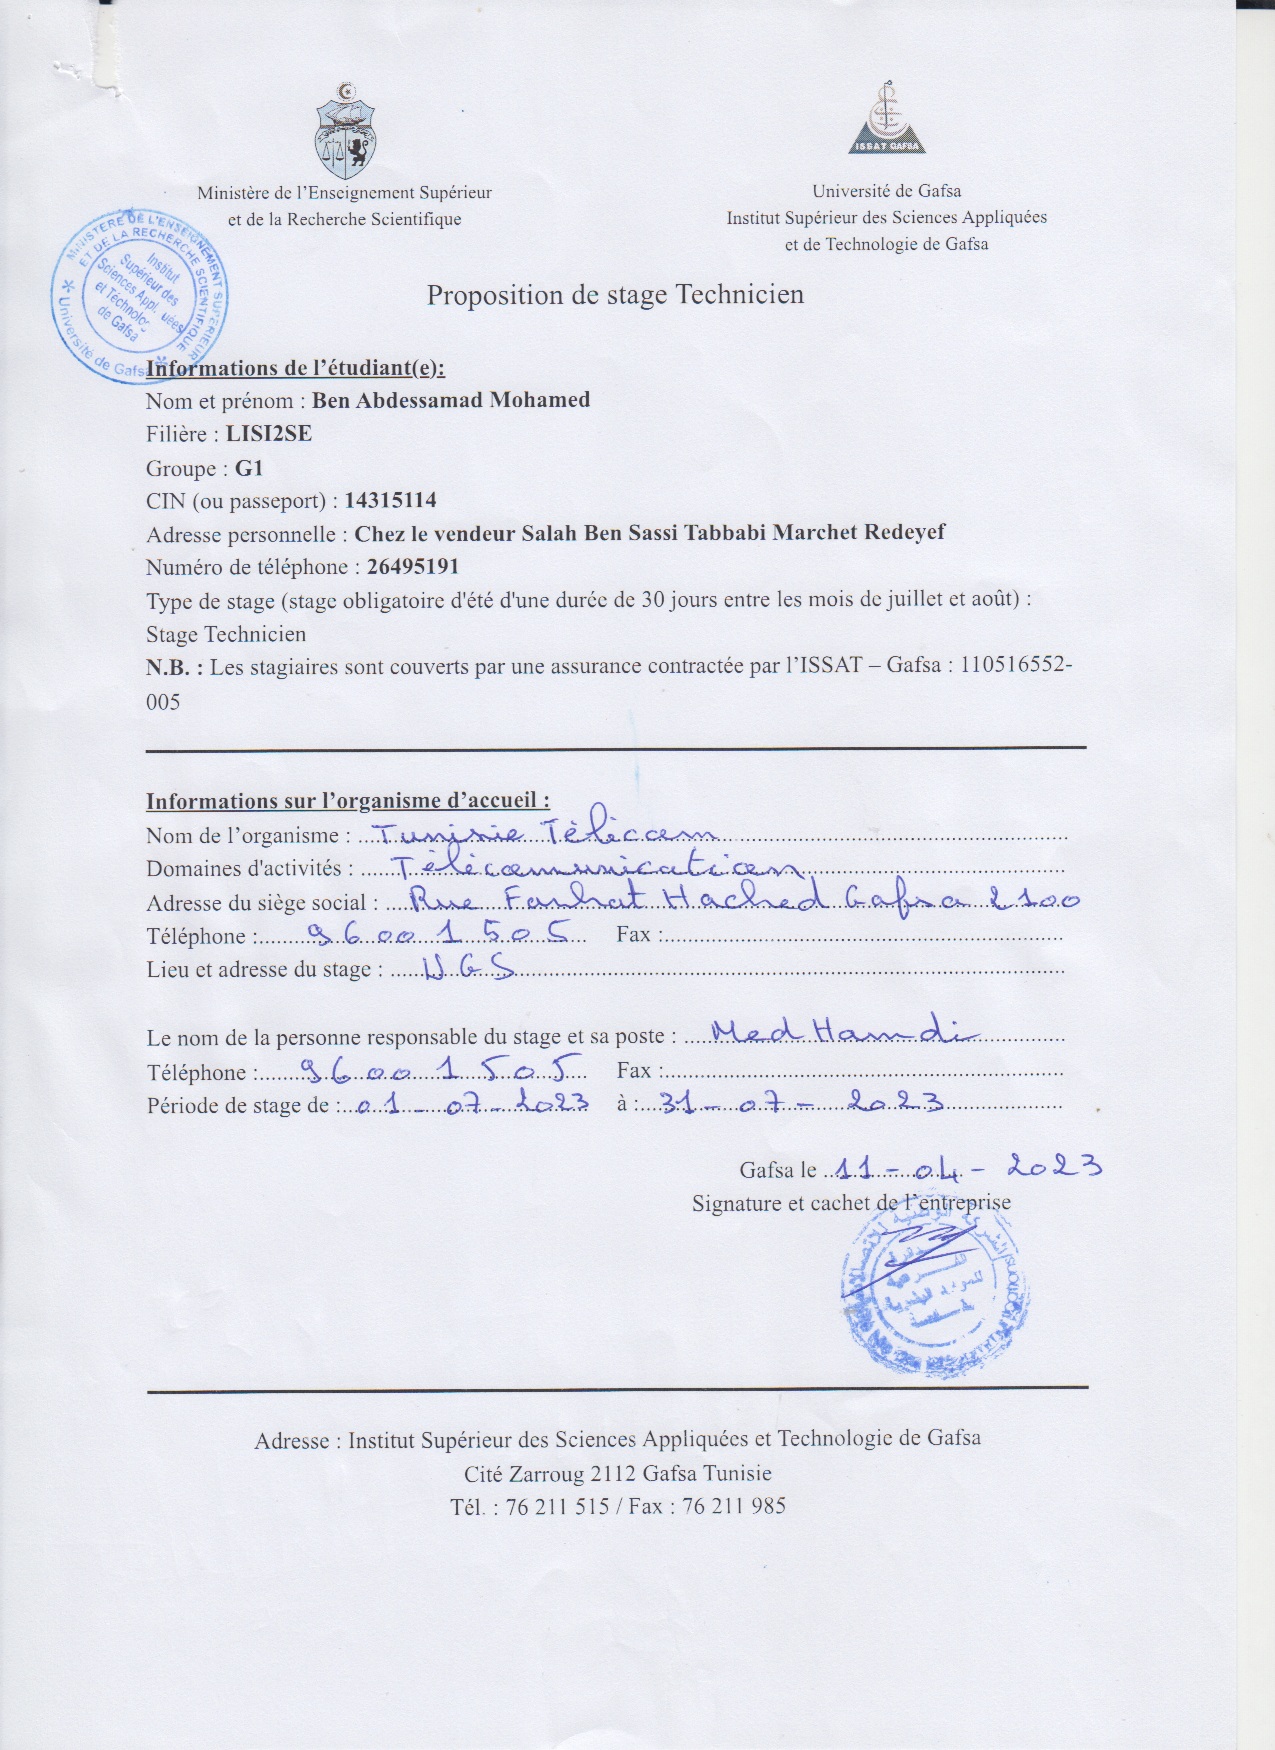 ISSAT GAFSA
Ministère de l'Enseignement Supérieur
et de la Recherche Scientifique
Université de Gafsa
Institut Supérieur des Sciences Appliquées
et de Technologie de Gafsa
MINISTERE DE L'ENSEIGNEMENT SUPERIEUR
ET DE LA RECHERCHE SCIENTIFIQUE
Institut
Supérieur des
Sciences Appl. uées
et Téchnolog
de Gafsa
Université de Gafsa
Proposition de stage Technicien
Informations de l'étudiant(e):
Nom et prénom : Ben Abdessamad Mohamed
Filière : LISI2SE
Groupe : G1
CIN (ou passeport) : 14315114
Adresse personnelle : Chez le vendeur Salah Ben Sassi Tabbabi Marchet Redeyef
Numéro de téléphone : 26495191
Type de stage (stage obligatoire d'été d'une durée de 30 jours entre les mois de juillet et août) :
Stage Technicien
N.B. : Les stagiaires sont couverts par une assurance contractée par l'ISSAT – Gafsa : 110516552-
005
Informations sur l'organisme d'accueil :
Nom de l'organisme : Tunisie Télécom
Domaines d'activités : Télécomunication
Adresse du siège social : Rue Farhat Hached Gafsa 2100
Téléphone : 96001505 Fax :
Lieu et adresse du stage : UGS
Le nom de la personne responsable du stage et sa poste : Med Hamdi
Téléphone : 96001505 Fax :
Période de stage de : 01 - 07 - 2023 à : 31 - 07 - 2023
Gafsa le 11 - 04 - 2023
Signature et cachet de l'entreprise
الشركة الوطنية للاتصالات
Adresse : Institut Supérieur des Sciences Appliquées et Technologie de Gafsa
Cité Zarroug 2112 Gafsa Tunisie
Tél. : 76 211 515 / Fax : 76 211 985